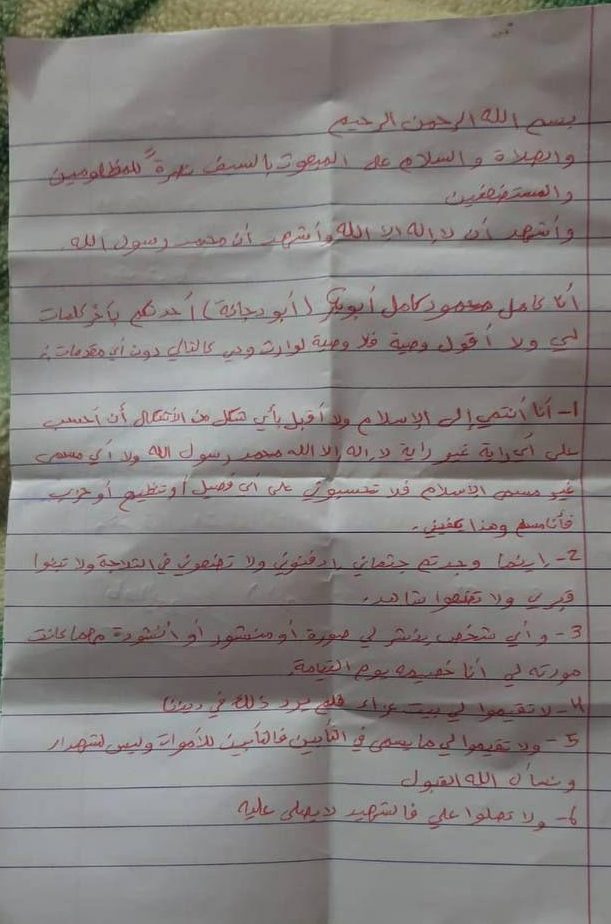 بسم الله الرحمن الرحيم
والصلاة والسلام على المبعوث بالسيف نصرةً للمظلومين
والمستضعفين
وأشهد أن لا إله إلا الله وأشهد أن محمد رسول الله.
أنا كامل محمود كامل أبوبكر (أبو دجانة) أحدثكم بآخر كلمات
لي ولا أقول وصية فلا وصية لوارث وهي كالتالي دون أي مقدمات :
1- أنا أنتمي إلى الإسلام ولا أقبل بأي شكل من الأشكال أن أحسب
على أي راية غير راية لا إله إلا الله محمد رسول الله ولا أي مسمى
غير مسمى الاسلام فلا تحسبوني على أي فصيل أو تنظيم أو حزب
فأنا مسلم وهذا يكفيني.
2- أينما وجدتم جثماني ادفنوني ولا تضعوني في الثلاجة ولا تبنوا
قبري ولا تضعوا شاهد.
3- و أي شخص ينشر لي صورة أو منشور أو أنشودة مهما كانت
مودته لي أنا خصيمه يوم القيامة.
4- لا تقيموا لي بيت عزاء فلم يرد ذلك في ديننا
5- ولا تقيموا لي ما يسمى في التأبين فالتأبين للأموات وليس للشهداء
ونسأل الله القبول
6- ولا تصلوا علي فالشهيد لا يصلى عليه